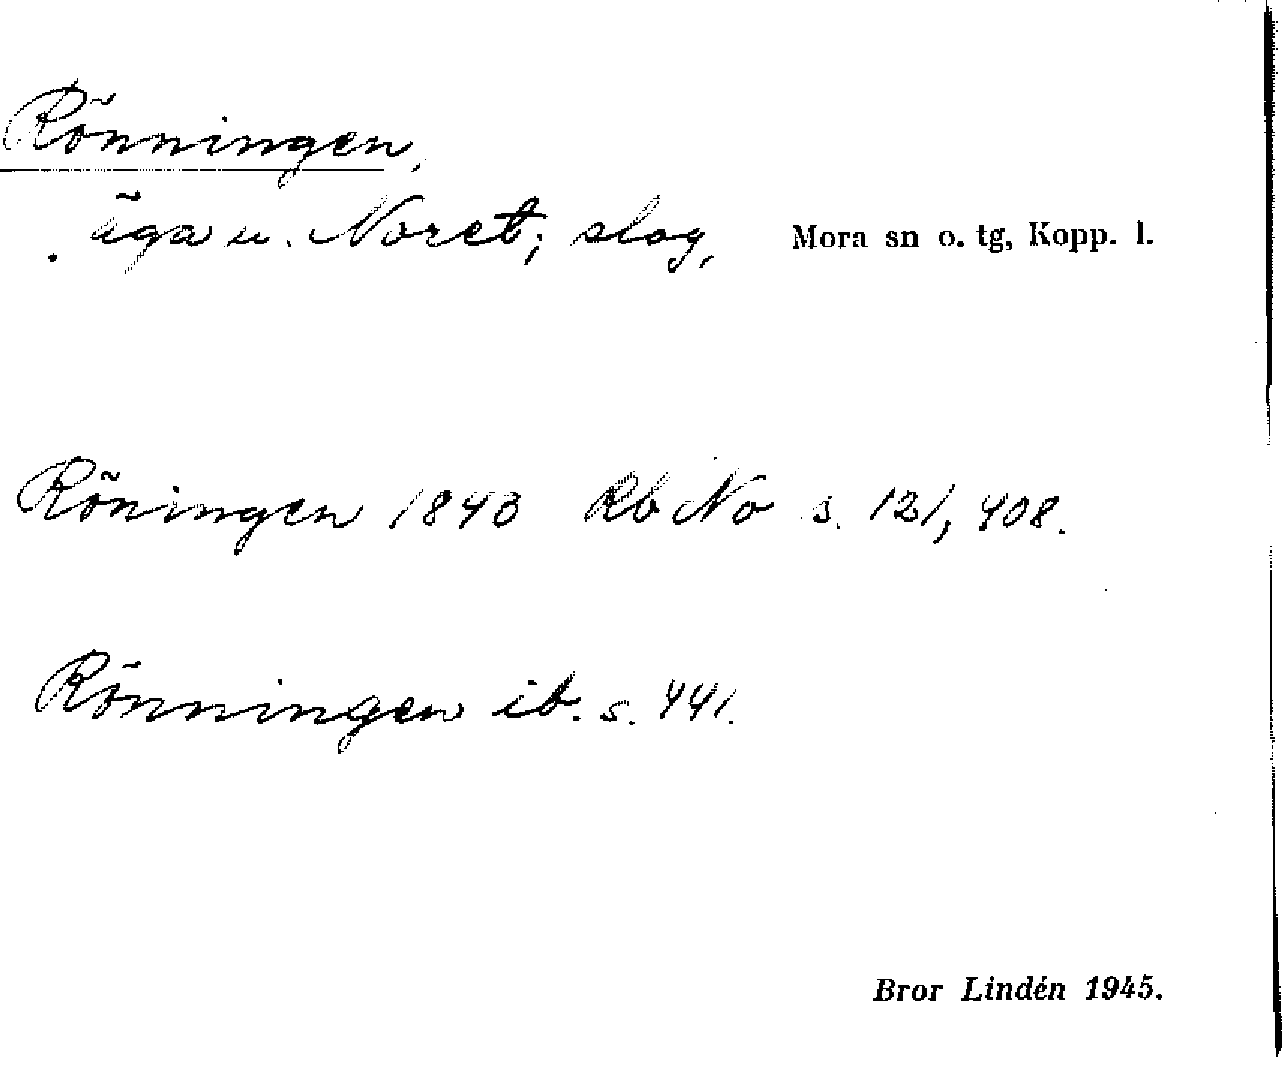 Rönningen,
äga u. Noret; slog, Mora sn o. tg, Kopp. l.
Röningen 1843 Rb No s. 121, 408.
Rönningen ib. s. 441.
Bror Lindén 1945.